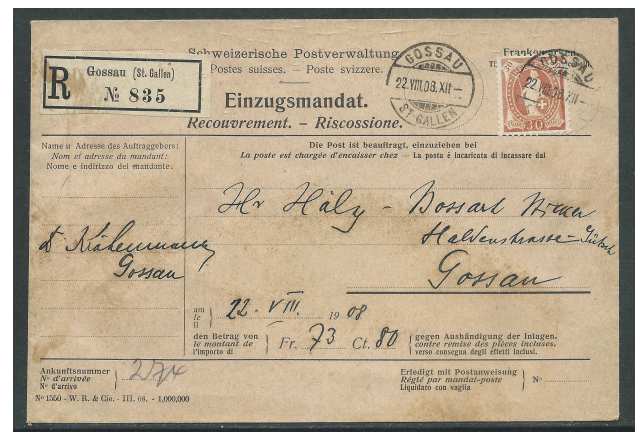 R Gossau (St. Gallen)
№ 835
Schweizerische Postverwaltung
Postes suisses. — Poste svizzere.
Einzugsmandat.
Recouvrement. - Riscossione.
GOSSAU
22.VIII.08.XII-
ST. GALLEN
GOSSAU
30
Name u. Adresse des Auftraggebers:
Nom et adresse du mandant:
Nome e indirizzo del mandante.
Die Post ist beauftragt, einzuziehen bei
La poste est chargée d'encaisser chez — La posta è incaricata di incassare dal
Hr Häly - Bossart
Haldenstrasse
Gossau
Gossau
am
le
il
22. VIII. 1908
den Betrag von
le montant de
l'importo di
Fr. 73 Ct. 80
gegen Aushändigung der Inlagen.
contre remise des pièces incluses.
verso consegna degli effetti inclusi.
Ankunftsnummer
N° d'arrivée
N° d'arrivo
274
Erledigt mit Postanweisung
Réglé par mandat-poste
Liquidato con vaglia
N°
N° 1550 - W. R. & Cie. - III. 08. - 1,000,000